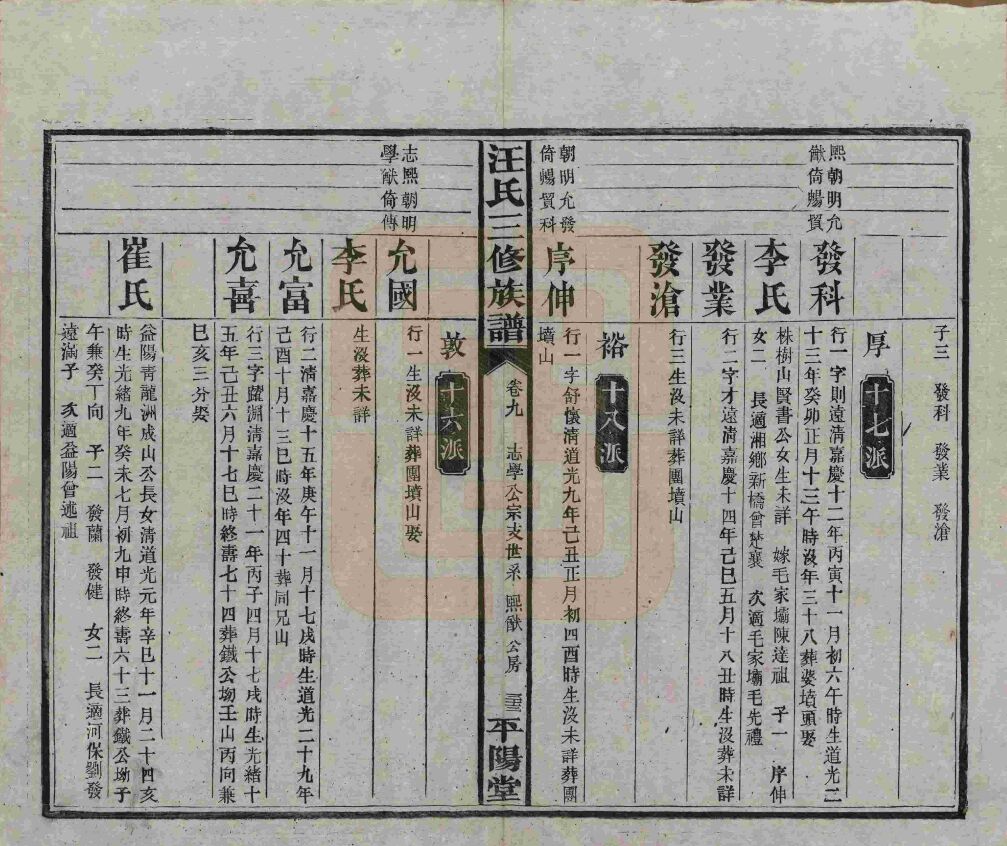 子三　發科　發業　發滄
厚　十七派
熙朝明允
猷倚暢貿
發科
行一字則遠清嘉慶十二年丙寅十一月初六午時生道光二
十三年癸卯正月十三午時沒年三十八葬婆墳頭娶
李氏
株樹山賢書公女生未詳　嫁毛家壩陳達祖　子一　序伸
女二　長適湘鄉新橋曾楚襄　次適毛家壩毛先禮
發業
行二字才遠清嘉慶十四年己巳五月十八丑時生沒葬未詳
發滄
行三生沒未詳葬團墳山
裕　十八派
朝明允發
倚暢貿科
序伸
行一字舒懷清道光九年己丑正月初四酉時生沒未詳葬團
墳山
汪氏三修族譜
卷九　志學公宗支世系　熙猷公房　三三
平陽堂
敦　十六派
志熙朝明
學猷倚傳
允國
行一生沒未詳葬團墳山娶
李氏
生沒葬未詳
允富
行二清嘉慶十五年庚午十一月十七戌時生道光二十九年
己酉十月十三巳時沒年四十葬同兄山
允喜
行三字躍淵清嘉慶二十一年丙子四月十七戌時生光緒十
五年己丑六月十七巳時終壽七十四葬鐵公坳壬山丙向兼
巳亥三分娶
崔氏
益陽青龍洲成山公長女清道光元年辛巳十一月二十四亥
時生光緒九年癸未七月初九申時終壽六十三葬鐵公坳子
午兼癸丁向　子二　發蘭　發健　女二　長適河保劉發
遠滿子　次適益陽曾述祖